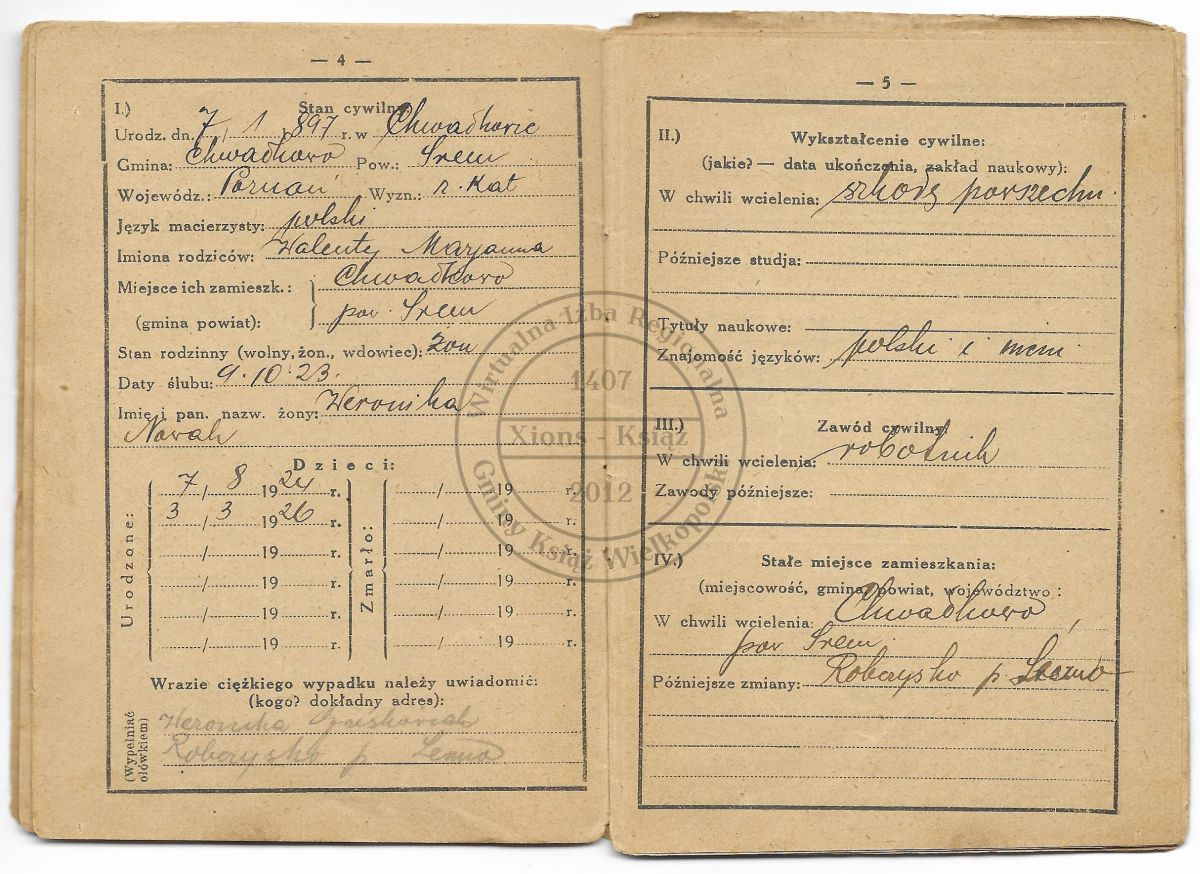 — 4 —
I.) Stan cywilny:
Urodz. dn. 7 / 1 897 r. w Chwałkowie
Gmina: Chwałkowo Pow.: Śrem
Wojewódz.: Poznań Wyzn.: r. Kat
Język macierzysty: polski
Imiona rodziców: Walenty Marjanna
Miejsce ich zamieszk.: Chwałkowo
(gmina powiat): pow. Śrem
Stan rodzinny (wolny, żon., wdowiec): żon
Daty ślubu: 9.10.23.
Imię i pan. nazw. żony: Weronika
Nowak
Dzieci:
Urodzone:
7 / 8 1924 r.
3 / 3 1926 r.
/ 19 r.
/ 19 r.
/ 19 r.
/ 19 r.
Zmarło:
/ 19 r.
/ 19 r.
/ 19 r.
/ 19 r.
/ 19 r.
/ 19 r.
Wrazie ciężkiego wypadku należy uwiadomić:
(kogo? dokładny adres):
(Wypełniać ołówkiem)
Weronika
Robczysko p.
— 5 —
II.) Wykształcenie cywilne:
(jakie? — data ukończenia, zakład naukowy):
W chwili wcielenia: szkołę powszechn.
Późniejsze studja:
Tytuły naukowe:
Znajomość języków: polski i niem
III.) Zawód cywilny:
W chwili wcielenia: robotnik
Zawody późniejsze:
IV.) Stałe miejsce zamieszkania:
(miejscowość, gmina, powiat, województwo:
W chwili wcielenia: Chwałkowo,
pow Śrem.
Późniejsze zmiany: Robczysko p.
Wirtualna Izba Regionalna
1407
Xions - Książ
2012
Gminy Książ Wielkopolski